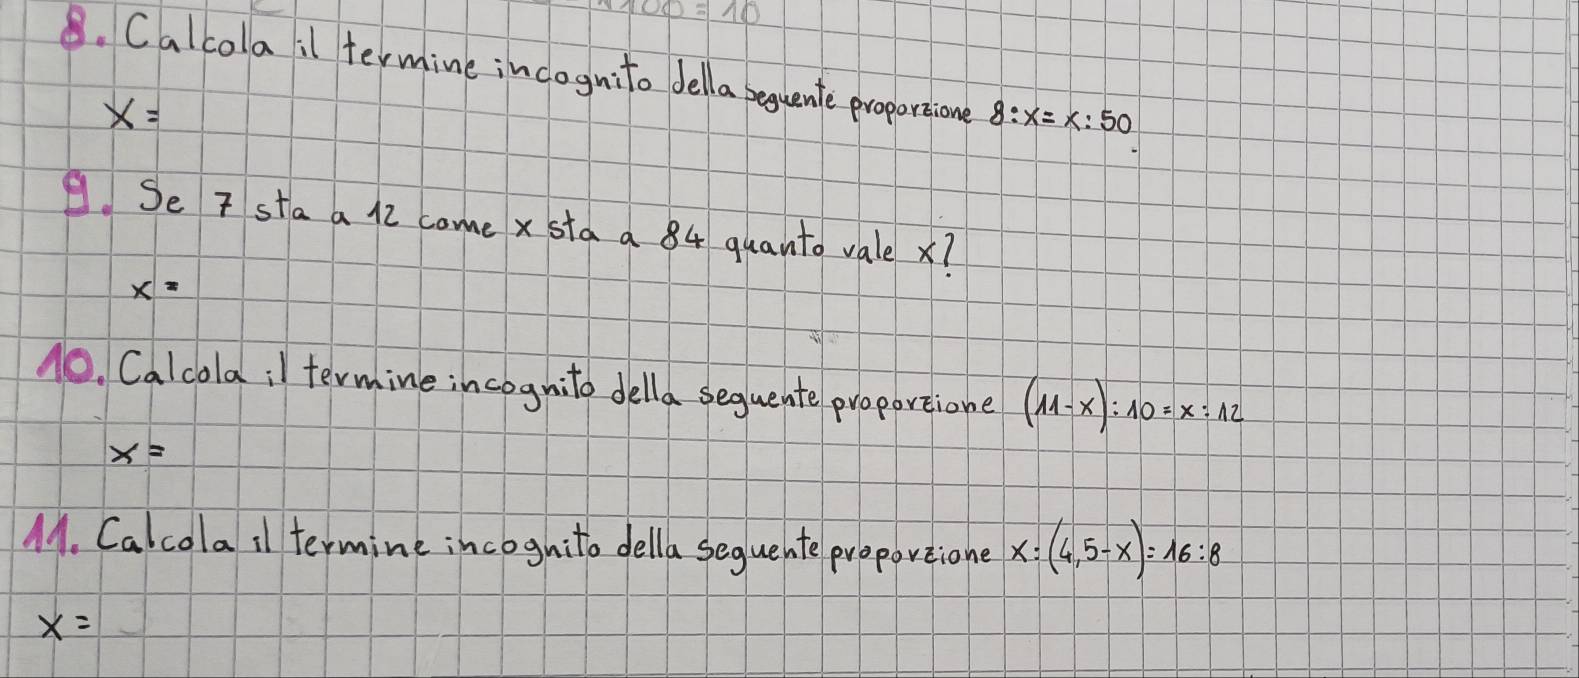 100=10
8. Calcola il termine incognito della seguente proporzione 8:x=x:50.
x=
9. Se 7 sta a 12 come x sta a 84 quanto vale x?
x=
10. Calcola il termine incognito della seguente proporzione (11-x):10=x:12
x=
11. Calcola il termine incognito della seguente proporzione x:(4,5-x)=16:8
x=